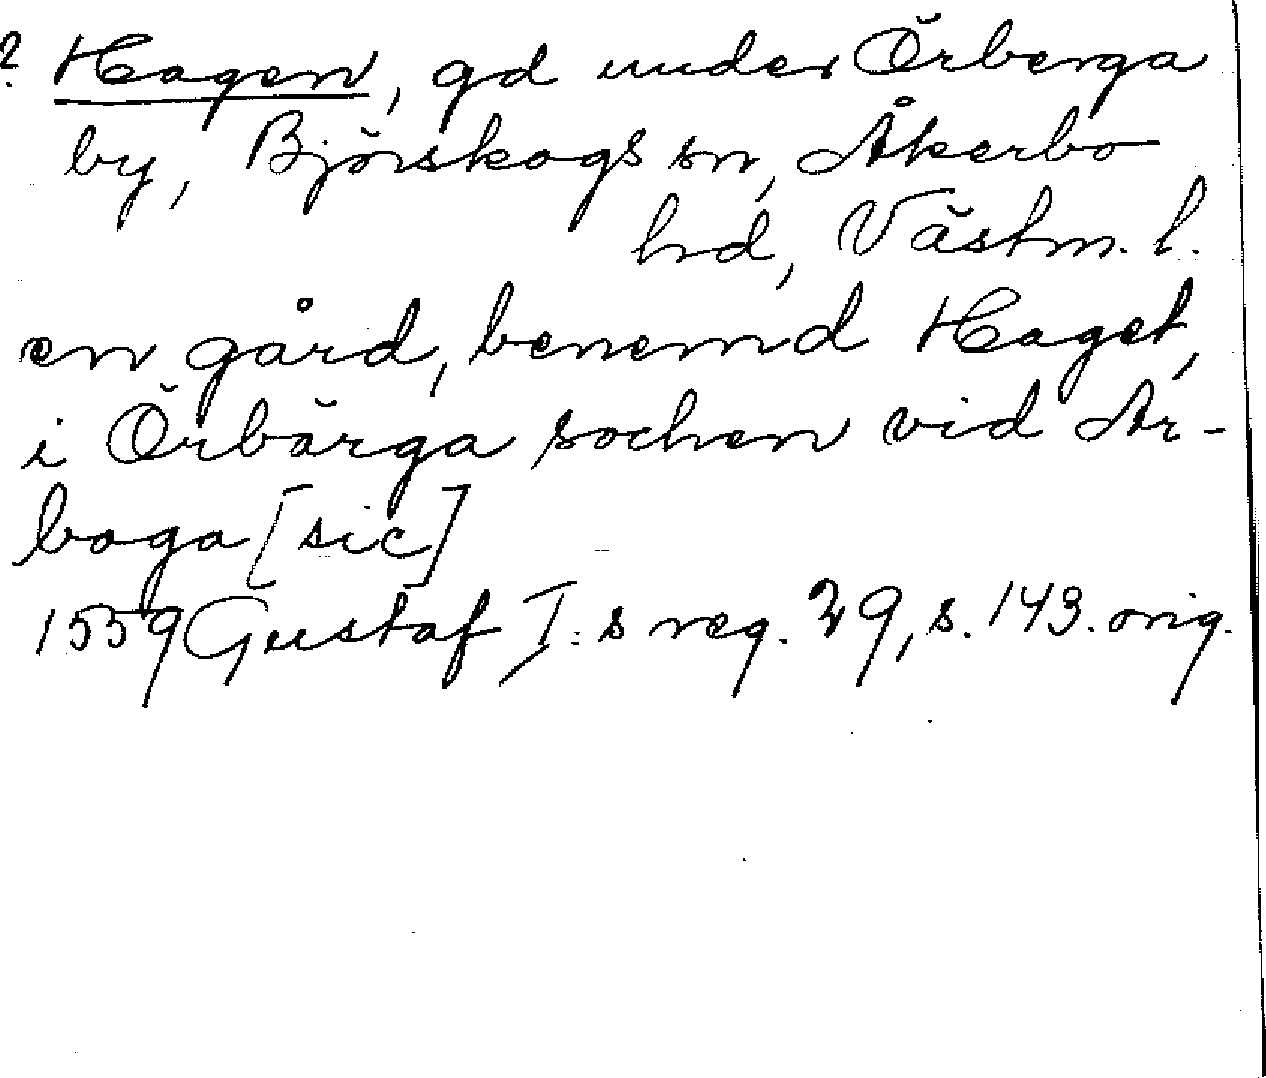 ? Hagen, gd under Örberga
by, Björskogs sn, Åkerbo
hd, Västm. l.
en gård, benemd Haget,
i Örbärga sochen vid Ar-
boga [sic]
1559 Gustaf I:s reg. 29, s. 143. orig.